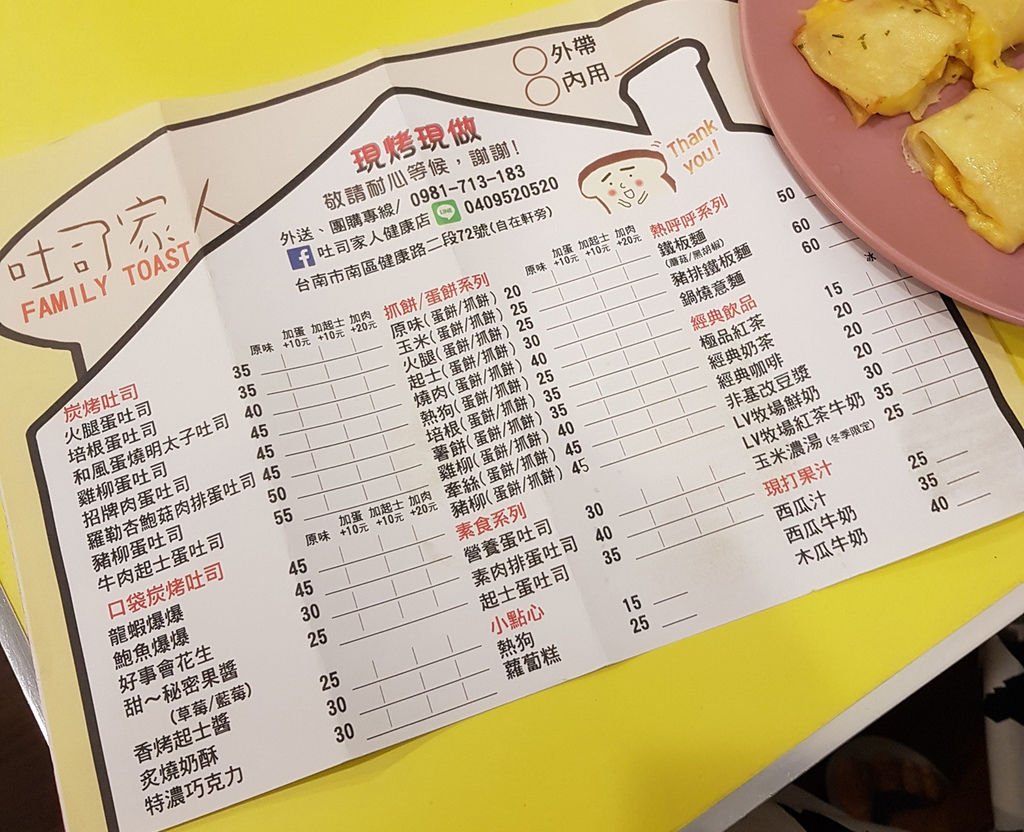 外帶
內用
現烤現做
敬請耐心等候，謝謝!
外送、團購專線/ 0981-713-183
吐司家人健康店 LINE 0409520520
台南市南區健康路二段72號(自在軒旁)
Thank you!
吐司家人
FAMILY TOAST
炭烤吐司 原味 加蛋+10元 加起士+10元 加肉+20元
火腿蛋吐司 35
培根蛋吐司 35
和風蛋燒明太子吐司 40
雞柳蛋吐司 45
招牌肉蛋吐司 45
羅勒杏鮑菇肉排蛋吐司 45
豬柳蛋吐司 50
牛肉起士蛋吐司 55
口袋炭烤吐司 原味 加蛋+10元 加起士+10元 加肉+20元
龍蝦爆爆 45
鮑魚爆爆 45
好事會花生 30
甜～秘密果醬 25
(草莓/藍莓)
香烤起士醬 25
炙燒奶酥 30
特濃巧克力 30
抓餅/蛋餅系列 原味 加蛋+10元 加起士+10元 加肉+20元
原味(蛋餅/抓餅) 20
玉米(蛋餅/抓餅) 25
火腿(蛋餅/抓餅) 25
起士(蛋餅/抓餅) 30
燒肉(蛋餅/抓餅) 40
熱狗(蛋餅/抓餅) 25
培根(蛋餅/抓餅) 35
薯餅(蛋餅/抓餅) 35
雞柳(蛋餅/抓餅) 40
牽絲(蛋餅/抓餅) 45
豬柳(蛋餅/抓餅) 45
素食系列
營養蛋吐司 30
素肉排蛋吐司 40
起士蛋吐司 35
小點心
熱狗 15
蘿蔔糕 25
熱呼呼系列
鐵板麵 50
(蘑菇/黑胡椒)
豬排鐵板麵 60
鍋燒意麵 60
經典飲品 冰
極品紅茶 15
經典奶茶 20
經典咖啡 20
非基改豆漿 20
LV牧場鮮奶 30
LV牧場紅茶牛奶 35
玉米濃湯(冬季限定) 25
現打果汁
西瓜汁 25
西瓜牛奶 35
木瓜牛奶 40